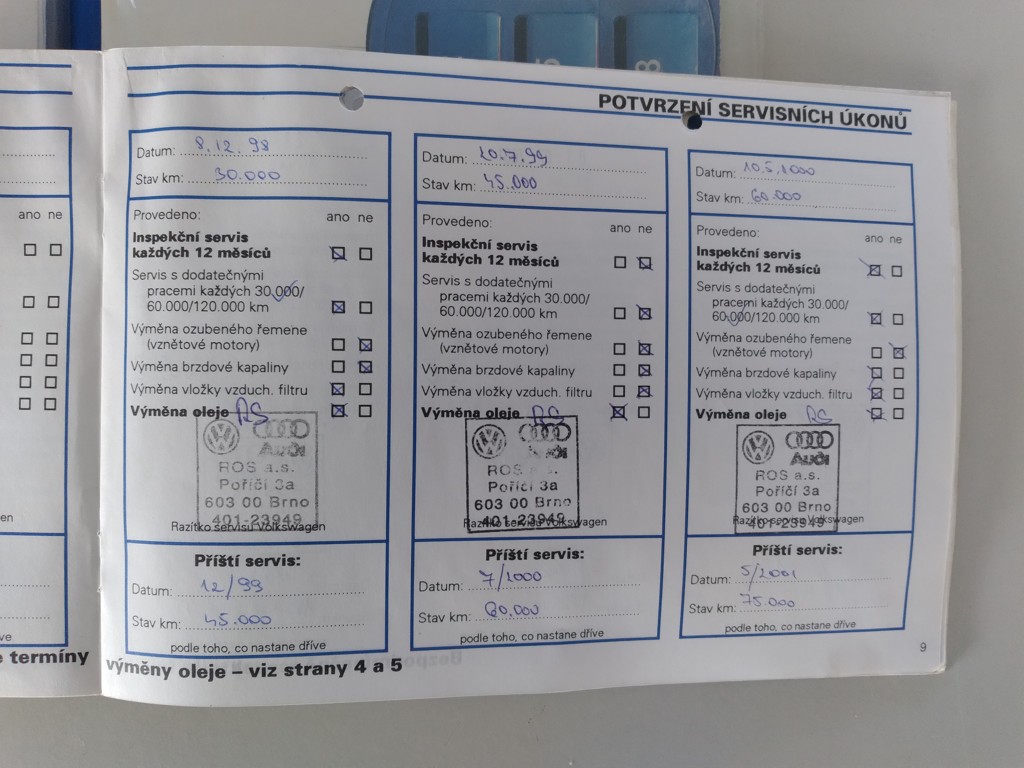 POTVRZENÍ SERVISNÍCH ÚKONŮ
Datum: 8.12.98
Stav km: 30.000
Provedeno: ano ne
Inspekční servis
každých 12 měsíců
Servis s dodatečnými
pracemi každých 30.000/
60.000/120.000 km
Výměna ozubeného řemene
(vznětové motory)
Výměna brzdové kapaliny
Výměna vložky vzduch. filtru
Výměna oleje RS
Audi
ROS a.s.
Poříčí 3a
603 00 Brno
401-23949
Razítko servisu Volkswagen
Příští servis:
Datum: 12/99
Stav km: 45.000
podle toho, co nastane dříve
Datum: 20.7.99
Stav km: 45.000
Provedeno: ano ne
Inspekční servis
každých 12 měsíců
Servis s dodatečnými
pracemi každých 30.000/
60.000/120.000 km
Výměna ozubeného řemene
(vznětové motory)
Výměna brzdové kapaliny
Výměna vložky vzduch. filtru
Výměna oleje RS
Audi
ROS a.s.
Poříčí 3a
603 00 Brno
401-23949
Razítko servisu Volkswagen
Příští servis:
Datum: 7/2000
Stav km: 60.000
podle toho, co nastane dříve
Datum: 10.5.2000
Stav km: 60.000
Provedeno: ano ne
Inspekční servis
každých 12 měsíců
Servis s dodatečnými
pracemi každých 30.000/
60.000/120.000 km
Výměna ozubeného řemene
(vznětové motory)
Výměna brzdové kapaliny
Výměna vložky vzduch. filtru
Výměna oleje RS
Audi
ROS a.s.
Poříčí 3a
603 00 Brno
401-23949
Razítko servisu Volkswagen
Příští servis:
Datum: 5/2001
Stav km: 75.000
podle toho, co nastane dříve
9
výměny oleje – viz strany 4 a 5
ano ne
termíny